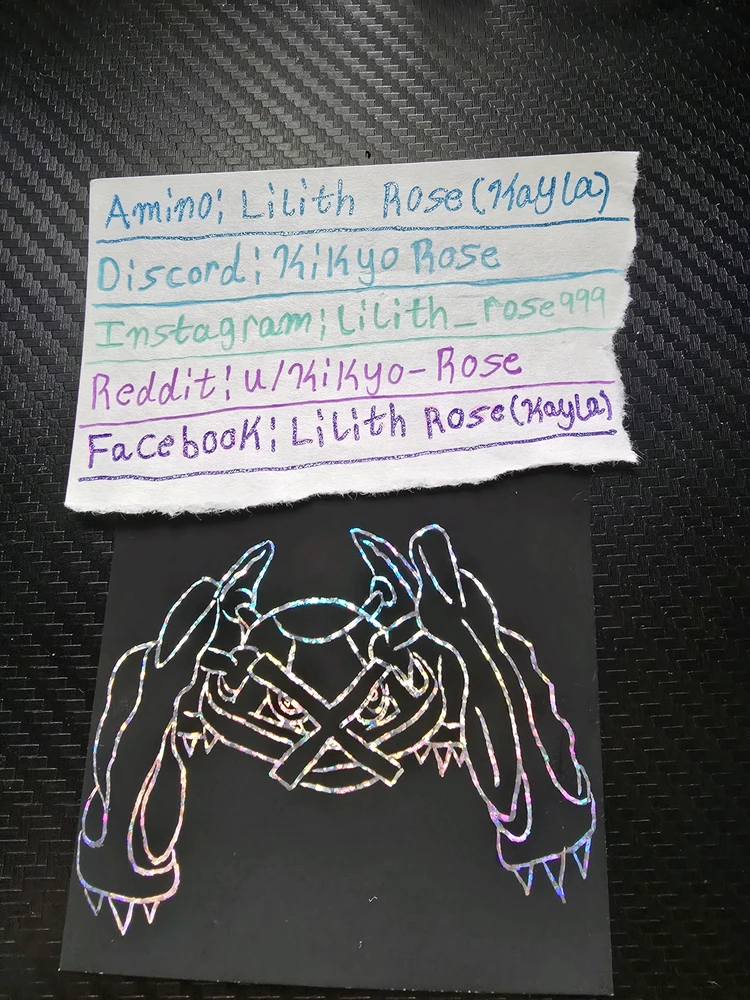 Amino: Lilith Rose (Kayla)
Discord: Kikyo Rose
Instagram: Lilith_rose999
Reddit: u/Kikyo-Rose
Facebook: Lilith Rose (Kayla)